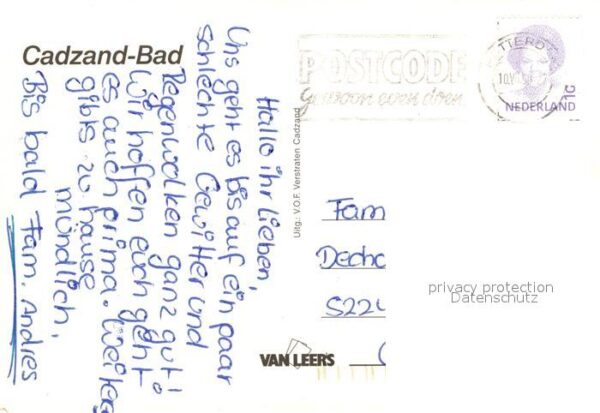 Cadzand-Bad
Hallo ihr lieben,
Uns geht es bis auf ein paar
schlechte Gewitter und
Regenwolken ganz gut!
Wir hoffen euch geht
es auch prima. Weiteres
gibts zu hause
mündlich,
Bis bald Fam. Andres
Uitg.: V.O.F. Verstraten Cadzand
POSTCODE
Gewoon even doen
TTERD
10.V
NEDERLAND
Fam
Decha
S224
VAN LEER'S
privacy protection
Datenschutz